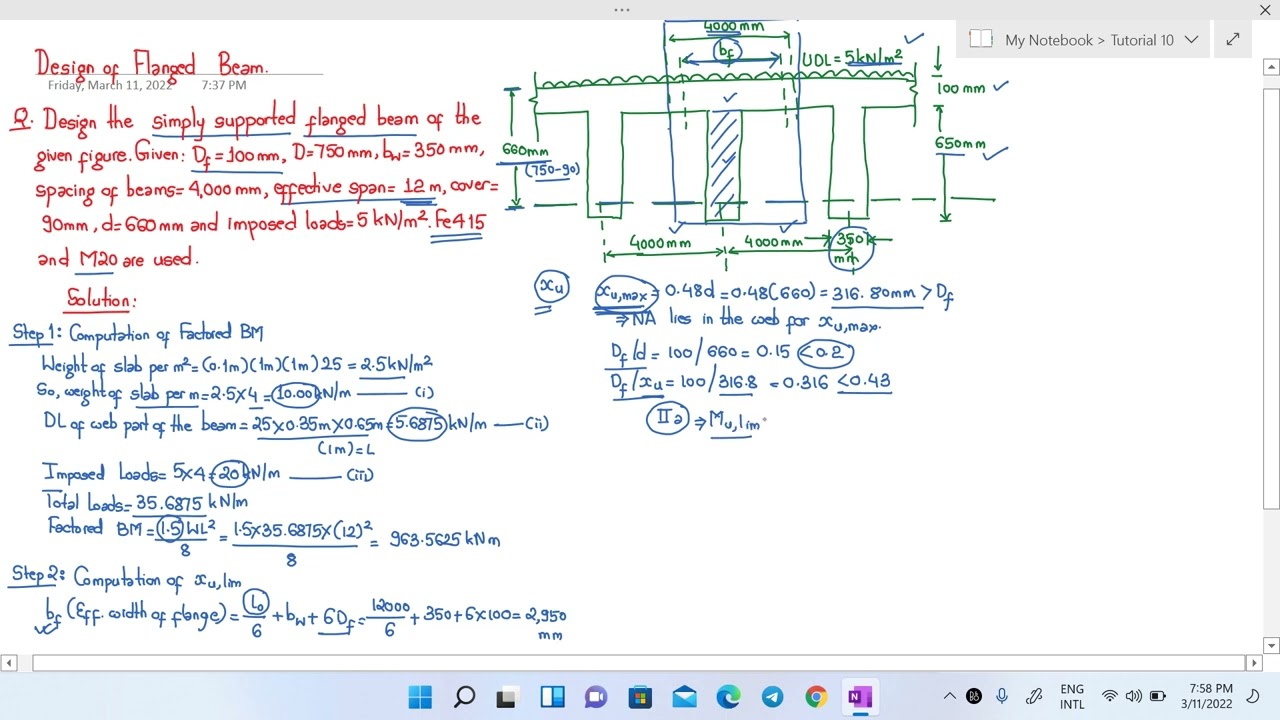 My Notebook > Tutorial 10
Design of Flanged Beam.
Friday, March 11, 2022 7:37 PM
Q. Design the simply supported flanged beam of the
given figure. Given: Df = 100mm, D=750mm, bw=350mm,
spacing of beams= 4,000mm, effective span= 12m, cover=
90mm, d=660mm and imposed loads=5 kN/m². Fe415
and M20 are used.
Solution:
Step 1: Computation of Factored BM
Weight of slab per m² = (0.1m)(1m)(1m) 25 = 2.5kN/m²
So, weight of slab per m=2.5x4 = 10.00 kN/m (i)
DL of web part of the beam= 25x0.35mx0.65m= 5.6875 kN/m (ii)
(1m)=L
Imposed Loads= 5x4=20kN/m (iii)
Total Loads= 35.6875 kN/m
Factored BM = 1.5WL²/8 = 1.5x35.6875x(12)²/8 = 963.5625 kNm
Step 2: Computation of xu,lim
bf (Eff. width of flange) = Lo/6 + bw + 6Df = 12000/6 + 350+6x100=2,950
mm
4000mm
bf
UDL = 5kN/m²
100mm
660mm
(750-90)
650mm
4000mm
4000mm
350
mm
xu
xu,max = 0.48d = 0.48(660) = 316.80mm > Df
⇒ NA lies in the web for xu,max.
Df/d = 100/660 = 0.15 <0.2
Df/xu = 100/316.8 = 0.316 <0.43
IIa ⇒ Mu,lim
ENG
INTL
7:58 PM
3/11/2022